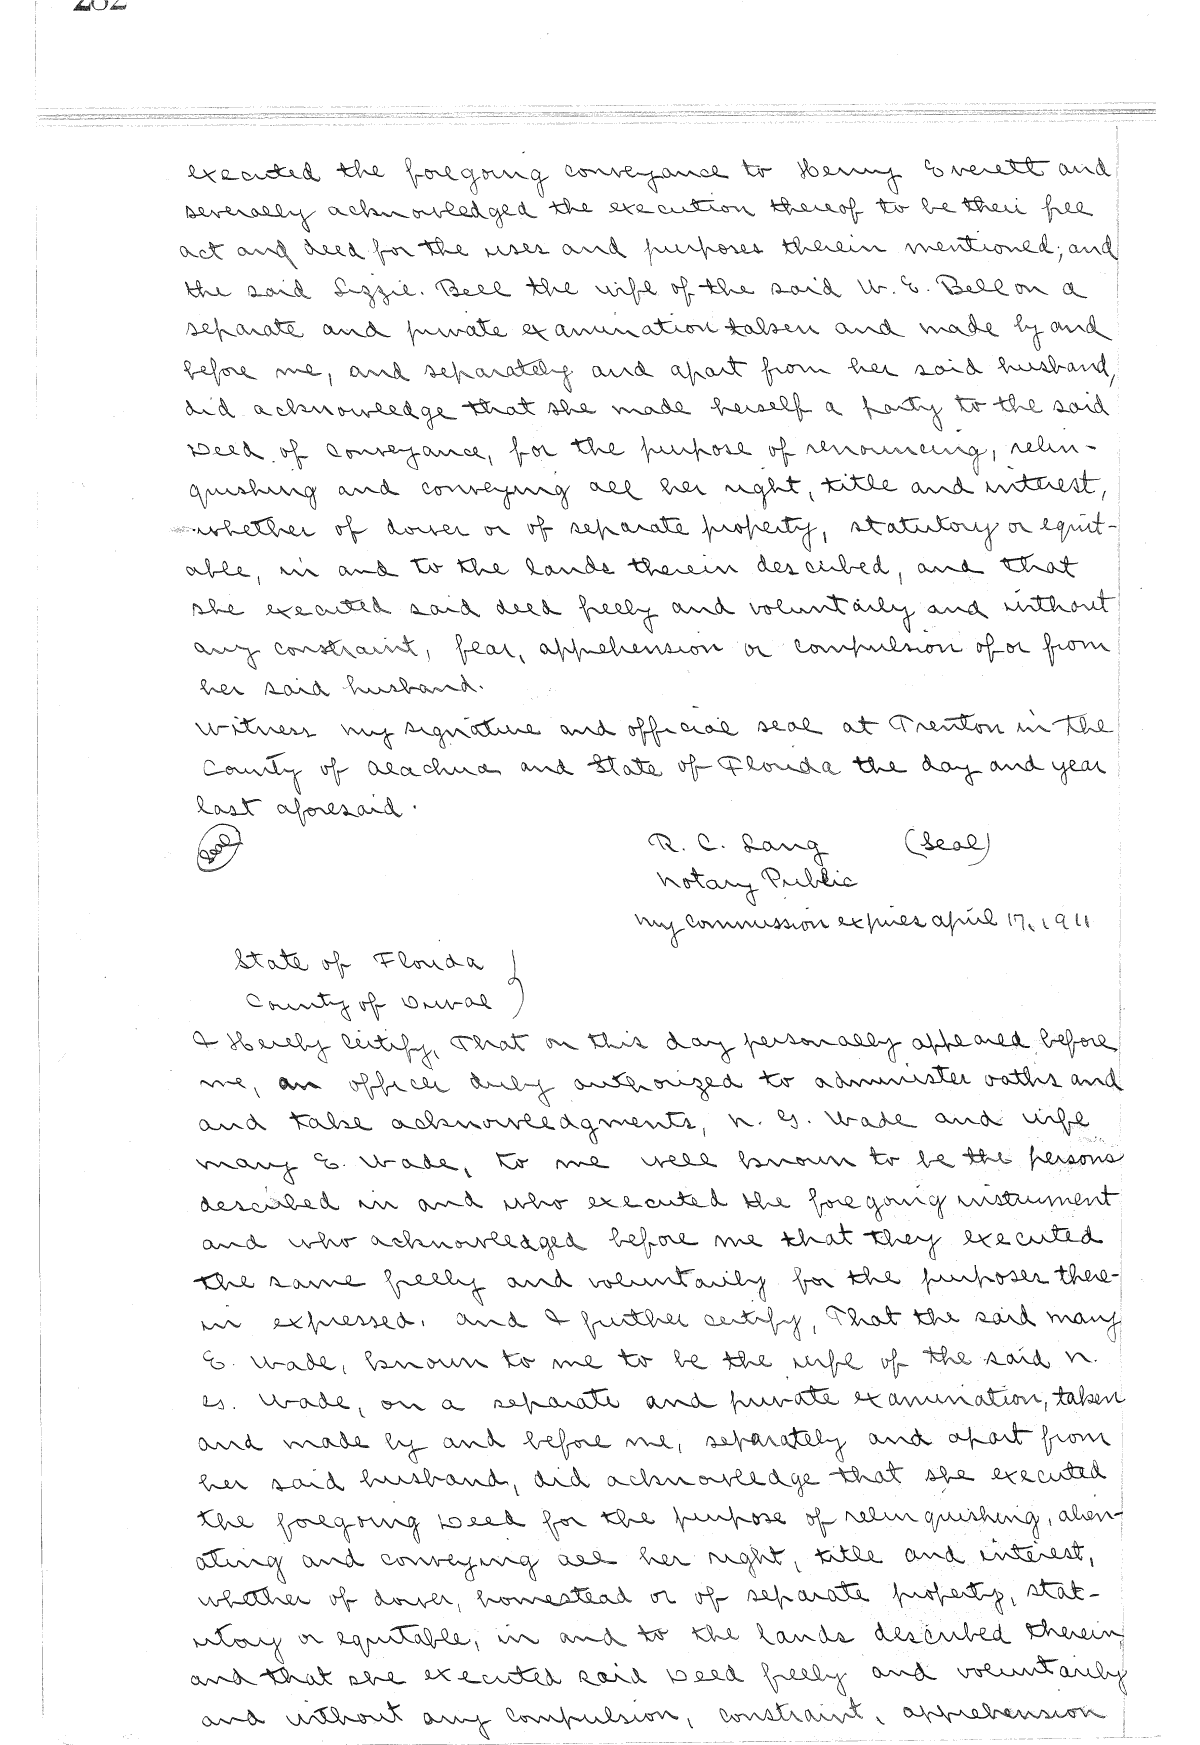 282
executed the foregoing conveyance to Henry Everett and
severally acknowledged the execution thereof to be their free
act and deed for the uses and purposes therein mentioned; and
the said Lizzie. Bell the wife of the said W. E. Bell on a
separate and private examination taken and made by and
before me, and separately and apart from her said husband,
did acknowledge that she made herself a party to the said
Deed of Conveyance, for the purpose of renouncing, relin-
quishing and conveying all her right, title and interest,
whether of dower or of separate property, statutory or equit-
able, in and to the lands therein described, and that
she executed said deed freely and voluntarily and without
any constraint, fear, apprehension or compulsion of or from
her said husband.
Witness my signature and official seal at Trenton in the
County of Alachua and State of Florida the day and year
last aforesaid.
Seal
R. C. Lang (Seal)
Notary Public
My commission expires April 17, 1911
State of Florida
County of Duval
I Hereby Certify, That on this day personally appeared before
me, an officer duly authorized to administer oaths and
and take acknowledgments, N. G. Wade and wife
Mary E. Wade, to me well known to be the persons
described in and who executed the foregoing instrument
and who acknowledged before me that they executed
the same freely and voluntarily for the purposes there-
in expressed. And I further certify, That the said Mary
E. Wade, known to me to be the wife of the said N.
G. Wade, on a separate and private examination, taken
and made by and before me, separately and apart from
her said husband, did acknowledge that she executed
the foregoing Deed for the purpose of relinquishing, alien-
ating and conveying all her right, title and interest,
whether of dower, homestead or of separate property, stat-
utory or equitable, in and to the lands described therein
and that she executed said Deed freely and voluntarily
and without any compulsion, constraint, apprehension